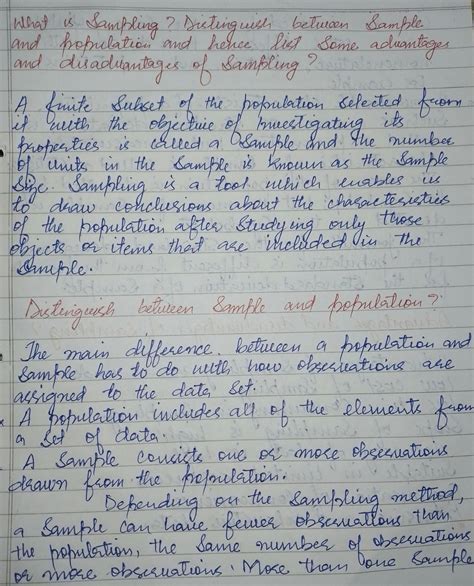 What is Sampling? Distinguish between Sample
and population and hence list Some advantages
and disadvantages of Sampling?
A finite Subset of the population selected from
it with the objective of investigating its
properties is called a Sample and the number
of units in the Sample is known as the Sample
Size. Sampling is a tool which enables us
to draw conclusions about the characteristics
of the population after Studying only those
objects or items that are included in the
Sample.
Distinguish between Sample and population?
The main difference between a population and
Sample has to do with how observations are
assigned to the data Set.
A population includes all of the elements from
a Set of data.
A Sample consists one or more observations
drawn from the population.
Depending on the Sampling method,
a Sample can have fewer observations than
the population, the Same number of observations
or more observations. More than one Sample